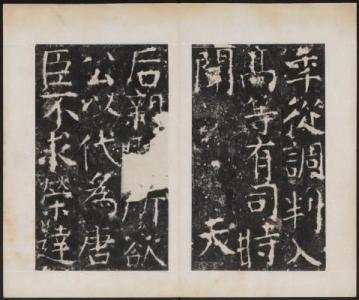 年從調判入
高等有司時
聞 天
后親 所欲
公以代為唐
臣不求榮達